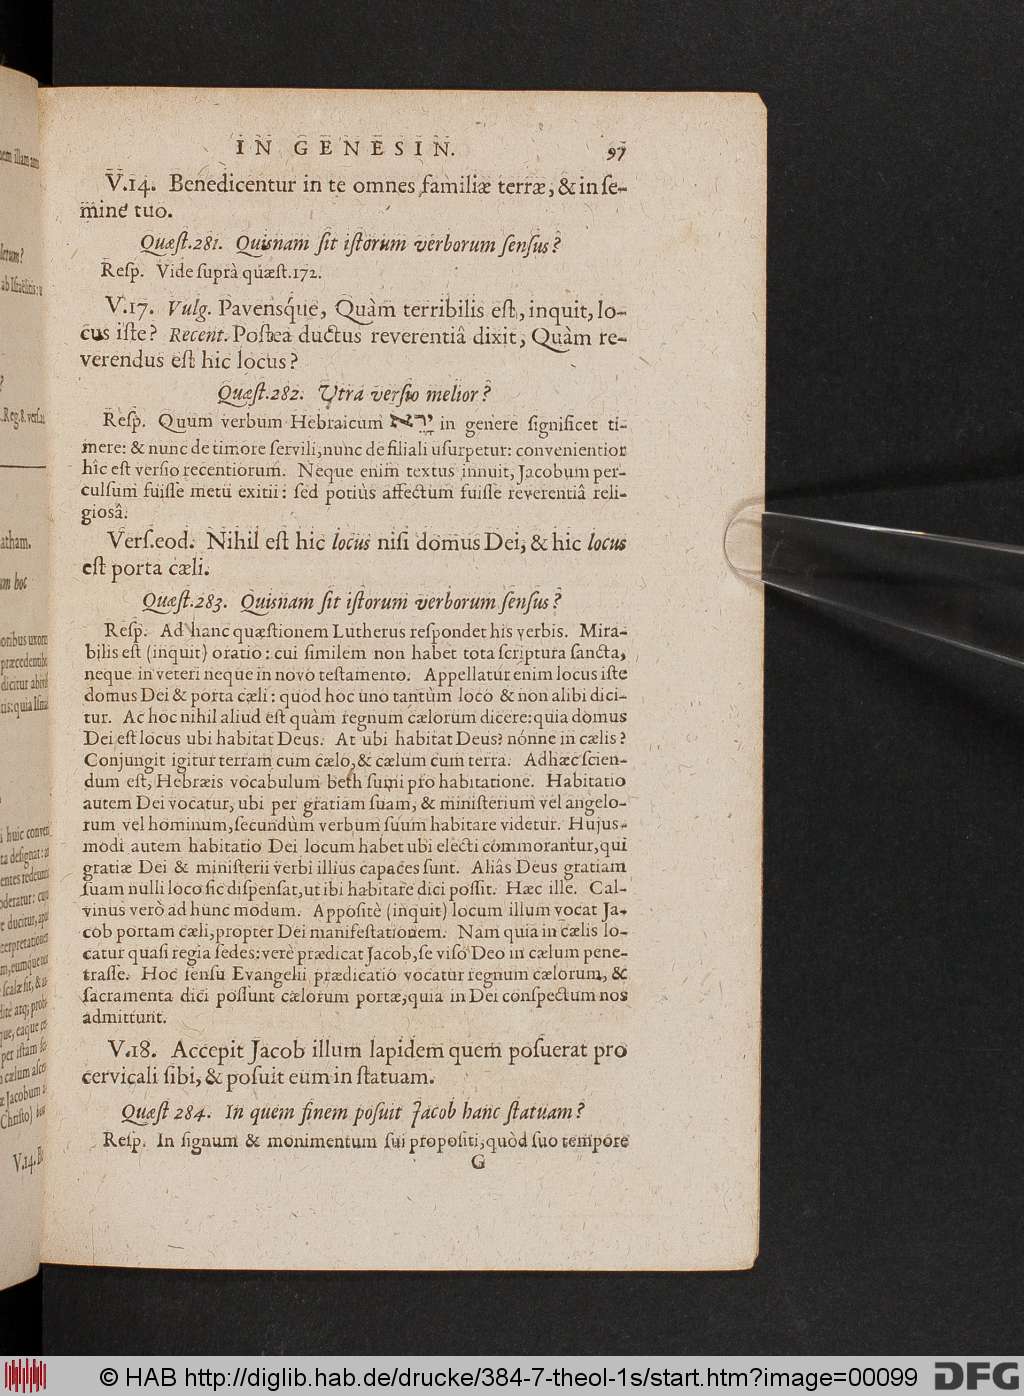 IN GENESIN. 97
V.14. Benedicentur in te omnes familiæ terræ, & in ſe-
mine tuo.
Quæſt.281. Quisnam ſit iſtorum verborum ſenſus?
Reſp. Vide ſuprà quæſt.172.
V.17. Vulg. Pavensq́ue, Quàm terribilis eſt, inquit, lo-
cus iſte? Recent. Poſtea ductus reverentiâ dixit, Quàm re-
verendus eſt hic locus?
Quæſt.282. Utra verſio melior?
Reſp. Quum verbum Hebraicum ירא in genere ſignificet ti-
mere: & nunc de timore ſervili, nunc de filiali uſurpetur: convenientior
hîc eſt verſio recentiorum. Neque enim textus innuit, Jacobum per-
culſum fuiſſe metu exitii: ſed potiùs affectum fuiſſe reverentiâ reli-
gioſâ.
Verſ.eod. Nihil eſt hic locus niſi domus Dei, & hic locus
eſt porta cæli.
Quæſt.283. Quisnam ſit iſtorum verborum ſenſus?
Reſp. Ad hanc quæſtionem Lutherus reſpondet his verbis. Mira-
bilis eſt (inquit) oratio: cui ſimilem non habet tota ſcriptura ſancta,
neque in veteri neque in novo teſtamento. Appellatur enim locus iſte
domus Dei & porta cæli: quod hoc uno tantùm loco & non alibi dici-
tur. Ac hoc nihil aliud eſt quàm regnum cælorum dicere: quia domus
Dei eſt locus ubi habitat Deus. At ubi habitat Deus? nónne in cælis?
Conjungit igitur terram cum cælo, & cælum cum terra. Adhæc ſcien-
dum eſt, Hebræis vocabulum beth ſumi pro habitatione. Habitatio
autem Dei vocatur, ubi per gratiam ſuam, & miniſterium vel angelo-
rum vel hominum, ſecundùm verbum ſuum habitare videtur. Hujus-
modi autem habitatio Dei locum habet ubi electi commorantur, qui
gratiæ Dei & miniſterii verbi illius capaces ſunt. Aliâs Deus gratiam
ſuam nulli loco ſic diſpenſat, ut ibi habitare dici poſſit. Hæc ille. Cal-
vinus verò ad hunc modum. Appoſitè (inquit) locum illum vocat Ja-
cob portam cæli, propter Dei manifeſtationem. Nam quia in cælis lo-
catur quaſi regia ſedes: verè prædicat Jacob, ſe viſo Deo in cælum pene-
traſſe. Hoc ſenſu Evangelii prædicatio vocatur regnum cælorum, &
ſacramenta dici poſſunt cælorum portæ, quia in Dei conſpectum nos
admittunt.
V.18. Accepit Jacob illum lapidem quem poſuerat pro
cervicali ſibi, & poſuit eum in ſtatuam.
Quæſt 284. In quem finem poſuit Jacob hanc ſtatuam?
Reſp. In ſignum & monimentum ſui propoſiti, quòd ſuo tempore
G
© HAB http://diglib.hab.de/drucke/384-7-theol-1s/start.htm?image=00099
DFG